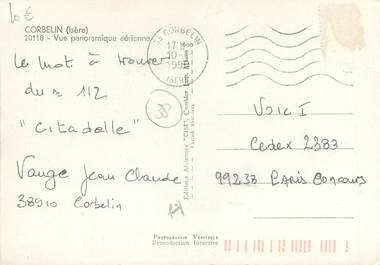 10 €
CORBELIN (Isère)
20118 - Vue panoramique aérienne
38 CORBELIN
17 H
10-1
ISERE
Le mot à trouver
du n° 112
"Citadelle"
38
Vauge Jean Claude
38510 Corbelin
VOICI
Cedex 2383
99238 PARIS CONCOURS
Editions Aériennes "CIM", Combier Imp. Mâcon
PHOTOGRAPHIE VÉRITABLE
Reproduction Interdite